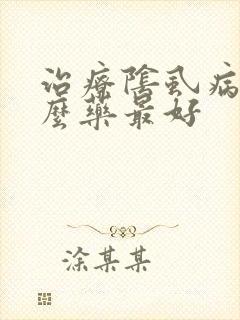 治療陰虱病
麼藥最好
涂某某